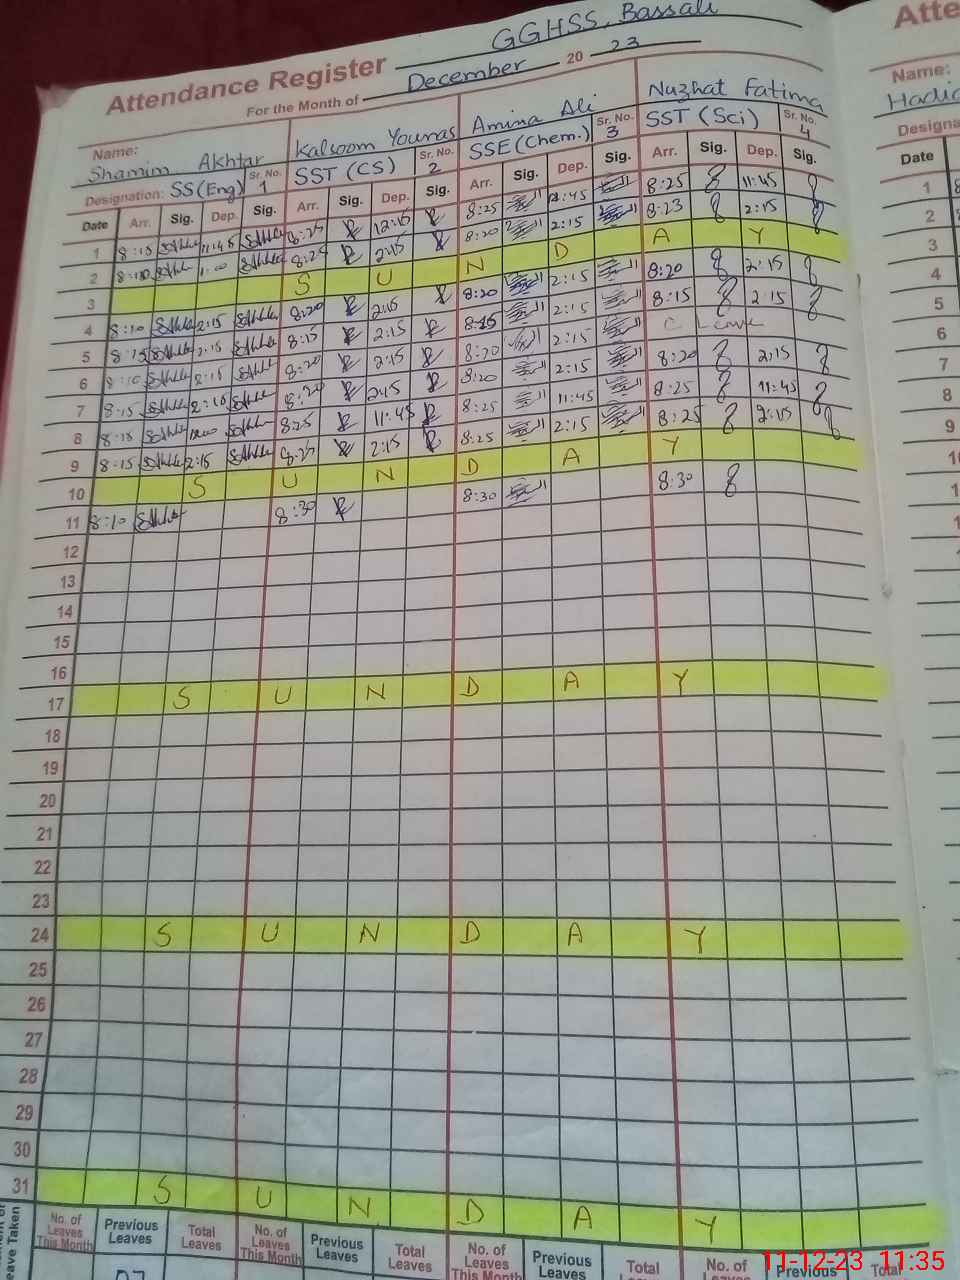 GGHSS, Bassali
Attendance Register
For the Month of December 20 23
Atte
Name: Shamim Akhtar Kalsoom Younas Amina Ali Nuzhat Fatima
Name:
Designation: SS(Eng) Sr. No. 1 SST (CS) Sr. No. 2 SSE(Chem.) Sr. No. 3 SST (Sci) Sr. No. 4
Designa
Date Arr. Sig. Dep. Sig. Arr. Sig. Dep. Sig. Arr. Sig. Dep. Sig. Arr. Sig. Dep. Sig.
Date
1 11:45 8:25 12:15 8:25 8:25 11:45
2 1:00 8:25 2:15 8:20 2:15 8:23 2:15
3 S U N D A Y
4 8:10 2:15 8:20 2:15 8:20 2:15 8:20 2:15
5 8:15 2:15 8:15 2:15 8:15 2:15 8:15 2:15
6 8:10 2:15 8:20 2:15 8:20 2:15 C Leave
7 8:15 8:20 2:15 8:20 2:15 8:20 2:15
8 8:15 8:25 11:45 8:25 11:45 8:25 11:45
9 8:15 2:15 8:25 2:15 8:25 2:15 8:25 2:15
10 S U N D A Y
11 8:10 8:30 8:30 8:30
12
13
14
15
16
17 S U N D A Y
18
19
20
21
22
23
24 S U N D A Y
25
26
27
28
29
30
31 S U N D A Y
1
2
3
4
5
6
7
8
9
eave Taken
No. of Leaves This Month Previous Leaves Total Leaves No. of Leaves This Month Previous Leaves Total Leaves No. of Leaves This Month Previous Leaves Total Leaves No. of Leaves Previous Total
11-12-23 11:35